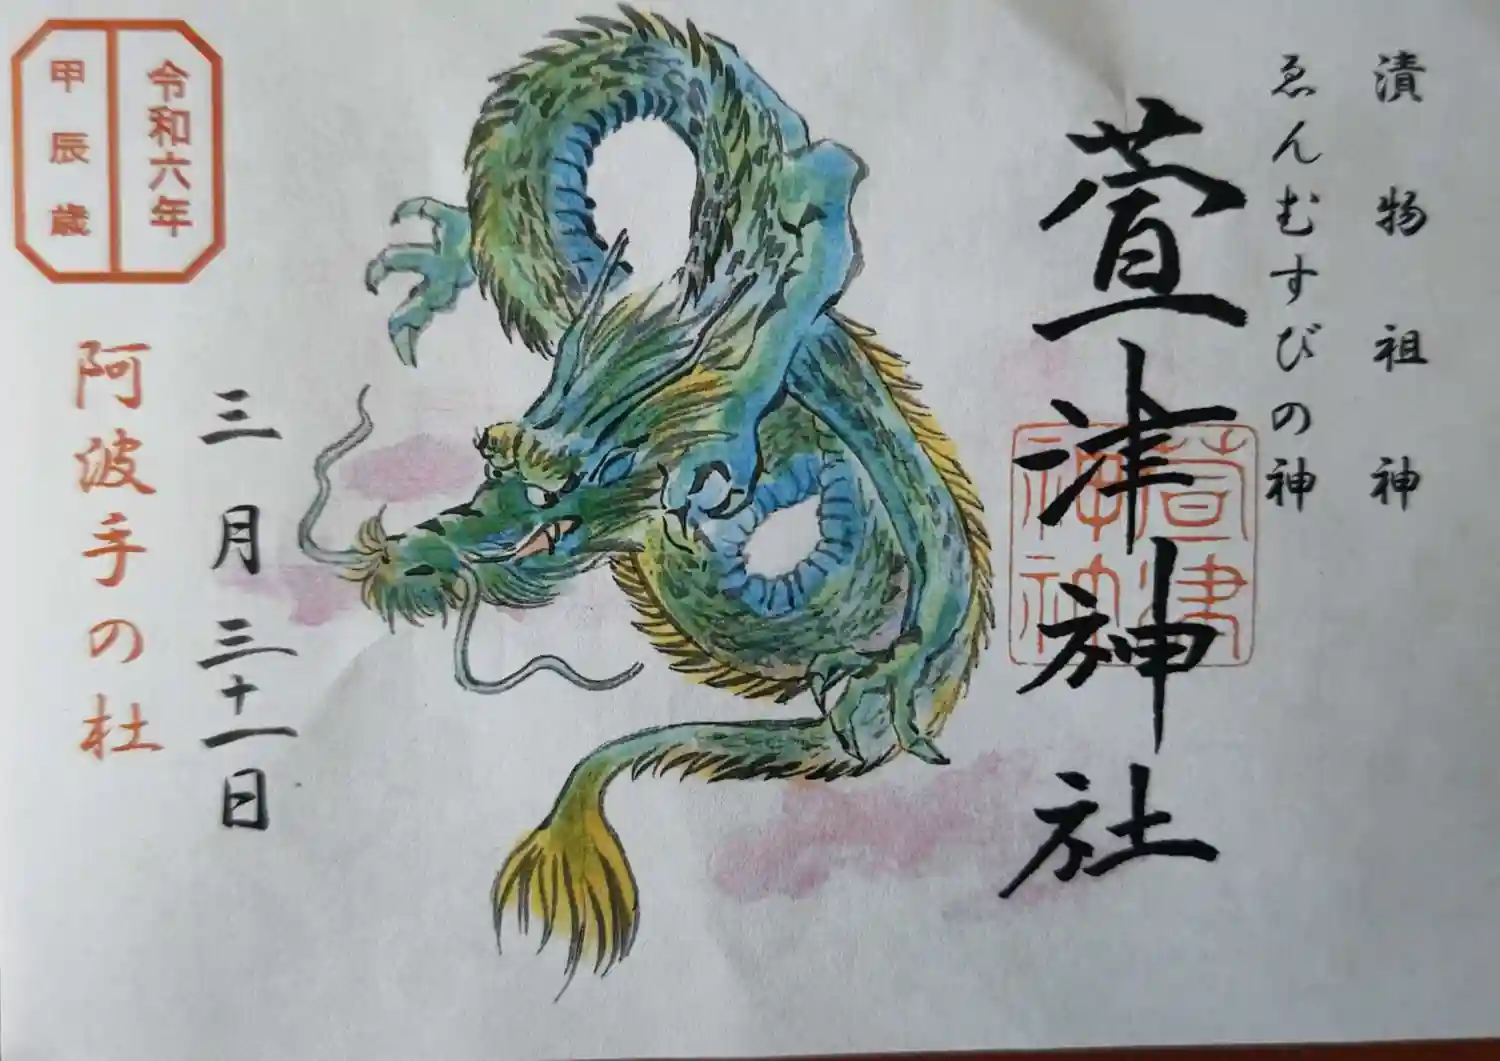 漬物祖神
ゑんむすびの神
萱津神社
萱津
神社
令和六年
甲辰歳
三月三十一日
阿波手の杜